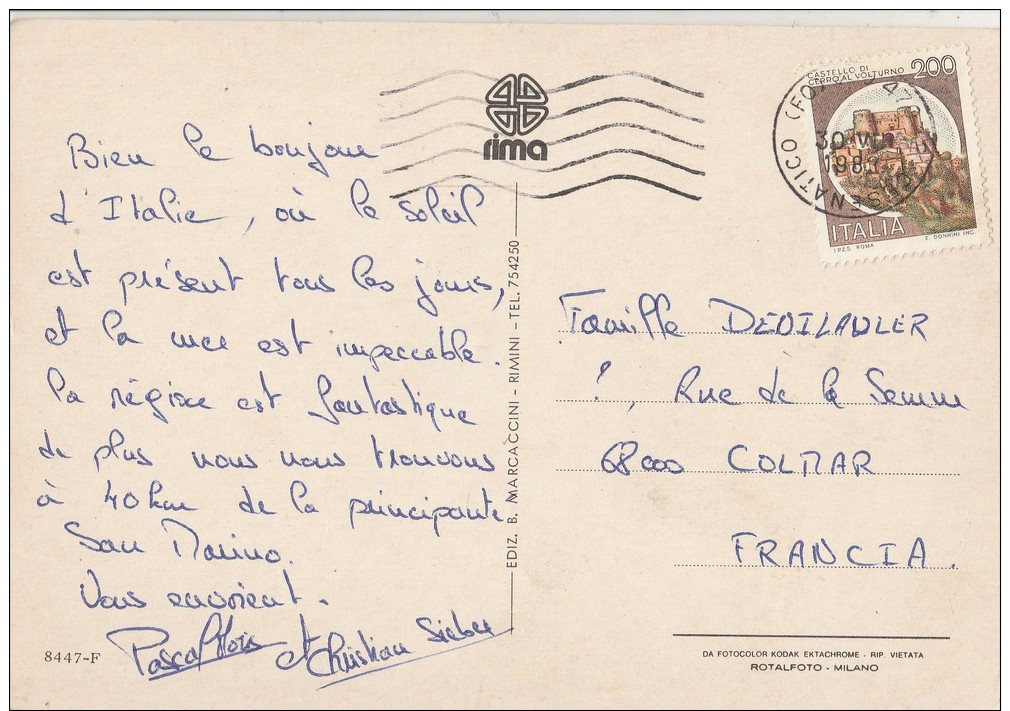 Bien le bonjour
d'Italie, où le soleil
est présent tous les jours,
et la mer est impeccable.
la région est fantastique
de plus nous nous trouvons
à 40 km de la principauté
San Marino.
Vous envoient.
Pascal et Christian Sieber
8447-F
rima
EDIZ. B. MARCACCINI - RIMINI - TEL. 754250
CASTELLO DI
CERRO AL VOLTURNO 200
ITALIA
I.P.Z.S. ROMA E. DONNINI INC.
CESENATICO (FO)
30
198
Famille
?, Rue de la Semm
68000 COLMAR
FRANCIA.
DA FOTOCOLOR KODAK EKTACHROME - RIP. VIETATA
ROTALFOTO - MILANO